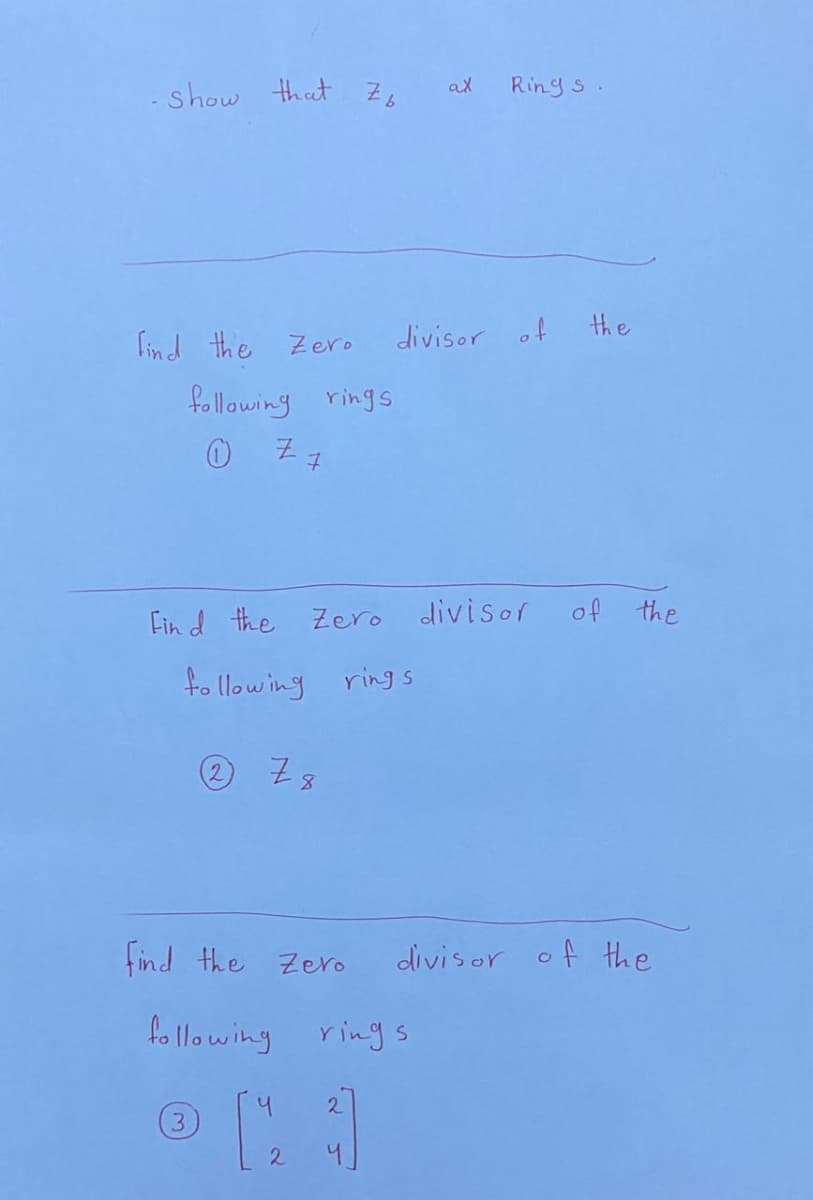 - Show that Z₆ ax Rings.
Find the Zero divisor of the
following rings
① Z₇
Find the Zero divisor of the
following rings
② Z₈
find the Zero divisor of the
following rings
③ [4 2
2 4]